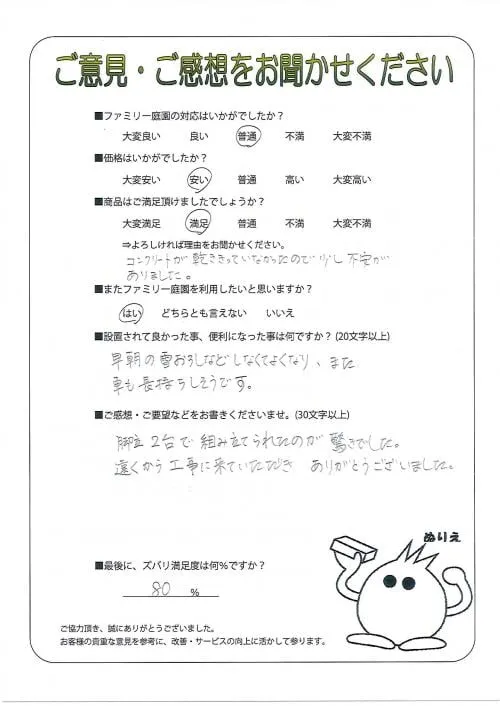 ご意見・ご感想をお聞かせください
■ファミリー庭園の対応はいかがでしたか？
大変良い 良い 普通 不満 大変不満
■価格はいかがでしたか？
大変安い 安い 普通 高い 大変高い
■商品はご満足頂けましたでしょうか？
大変満足 満足 普通 不満 大変不満
⇒よろしければ理由をお聞かせください。
コンクリートが乾ききっていなかったので少し不安が
ありました。
■またファミリー庭園を利用したいと思いますか？
はい どちらとも言えない いいえ
■設置されて良かった事、便利になった事は何ですか？(20文字以上)
早朝の雪おろしなどしなくてよくなり、また
車も長持ちしそうです。
■ご感想・ご要望などをお書きくださいませ。(30文字以上)
脚立2台で組み立てられたのが驚きでした。
遠くから工事に来ていただき ありがとうございました。
ぬりえ
■最後に、ズバリ満足度は何％ですか？
80 %
ご協力頂き、誠にありがとうございました。
お客様の貴重な意見を参考に、改善・サービスの向上に活かして参ります。